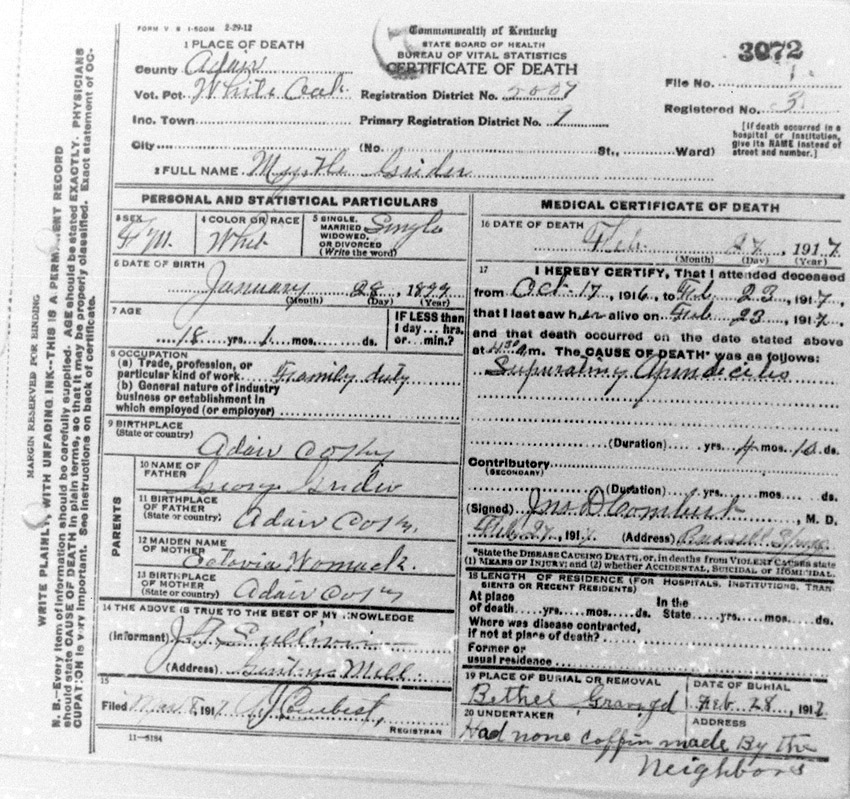 FORM V S 1-500M 2-29-12
Commonwealth of Kentucky
STATE BOARD OF HEALTH
BUREAU OF VITAL STATISTICS
CERTIFICATE OF DEATH
3072
1 PLACE OF DEATH
County Adair
Vot. Pct White Oak
Registration District No. 5007
File No. 1
Inc. Town
Primary Registration District No. 9
Registered No. 3
City (No. St., Ward)
[If death occurred in a hospital or institution, give its NAME instead of street and number.]
2 FULL NAME Myrthe Grider
PERSONAL AND STATISTICAL PARTICULARS
3 SEX
4 COLOR OR RACE White
5 SINGLE, MARRIED WIDOWED, OR DIVORCED (Write the word) Single
6 DATE OF BIRTH
January 28, 1899
(Month) (Day) (Year)
7 AGE
18 yrs. 1 mos. ds.
IF LESS than 1 day... hrs. or... min.?
8 OCCUPATION
(a) Trade, profession, or particular kind of work Family duty
(b) General nature of industry
business or establishment in
which employed (or employer)
9 BIRTHPLACE
(State or country) Adair Co Ky
PARENTS
10 NAME OF FATHER George Grider
11 BIRTHPLACE OF FATHER (State or country) Adair Co Ky.
12 MAIDEN NAME OF MOTHER Womack.
13 BIRTHPLACE OF MOTHER (State or country) Adair Co Ky
14 THE ABOVE IS TRUE TO THE BEST OF MY KNOWLEDGE
(Informant)
(Address) Gentrys Mill
15
Filed Mar 8, 1917
REGISTRAR
11—5184
MEDICAL CERTIFICATE OF DEATH
16 DATE OF DEATH
Feb 27, 1917
(Month) (Day) (Year)
17 I HEREBY CERTIFY, That I attended deceased
from Oct. 17, 1916, to Feb 23, 1917,
that I last saw her alive on Feb 23, 1917,
and that death occurred on the date stated above
at 4:30 a.m. The CAUSE OF DEATH* was as follows:
Supurating Apindecites
(Duration) yrs. 4 mos. 10 ds.
Contributory
(SECONDARY)
(Duration) yrs. mos. ds.
(Signed) Jno D Combest, M. D.
Feb 27, 1917. (Address)
*State the DISEASE CAUSING DEATH, or, in deaths from VIOLENT CAUSES state
(1) MEANS OF INJURY; and (2) whether ACCIDENTAL, SUICIDAL or HOMICIDAL.
18 LENGTH OF RESIDENCE (FOR HOSPITALS, INSTITUTIONS, TRANSIENTS OR RECENT RESIDENTS)
At place of death yrs. mos. ds. In the State yrs. mos. ds.
Where was disease contracted,
if not at place of death?
Former or
usual residence
19 PLACE OF BURIAL OR REMOVAL
Bethel
DATE OF BURIAL
Feb 28, 1917
20 UNDERTAKER
ADDRESS
Had none coffin made By the
Neighbors
MARGIN RESERVED FOR BINDING
WRITE PLAINLY, WITH UNFADING INK--THIS IS A PERMANENT RECORD
N. B.—Every item of information should be carefully supplied. AGE should be stated EXACTLY. PHYSICIANS
should state CAUSE OF DEATH in plain terms, so that it may be properly classified. Exact statement of OC-
CUPATION is very important. See instructions on back of certificate.